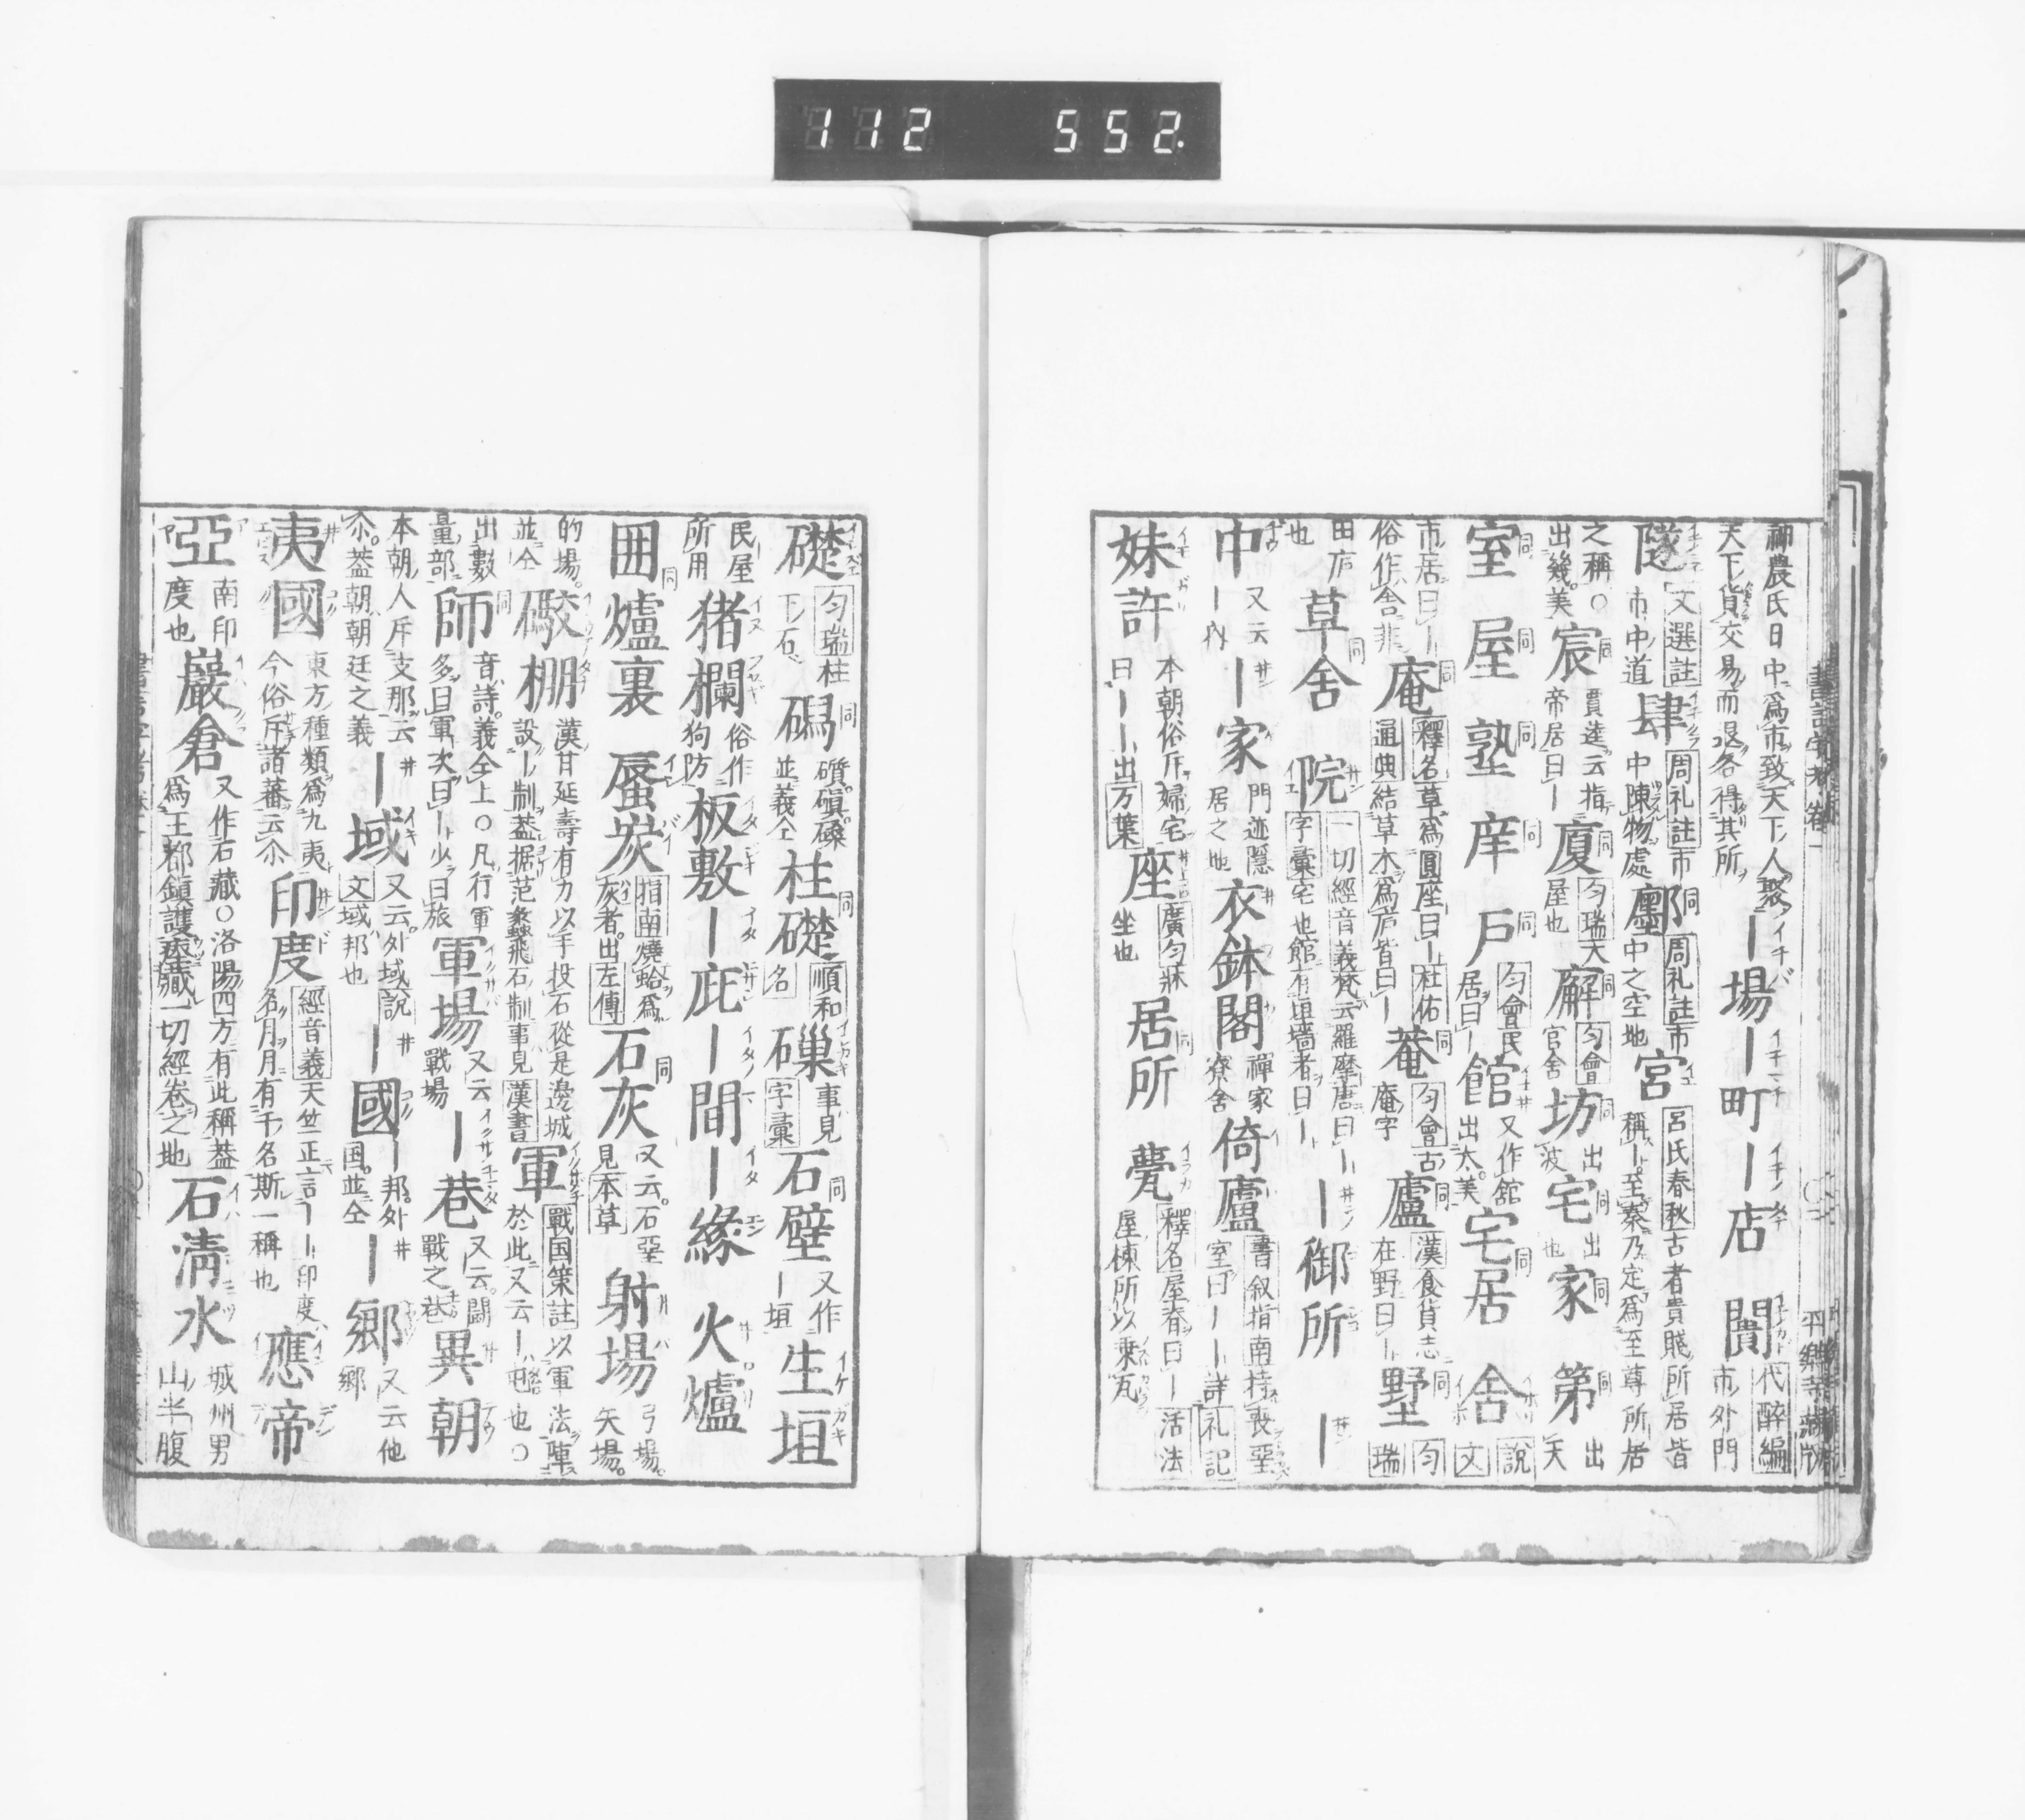 112 552.
神農氏日中爲市致天下人聚
天下貨交易而退各得其所
｜場｜町｜店 闠 代醉編 市外門
隧 文選註 市中道 肆 周礼註市中陳物處 鄽 周礼註市中之空地 宮 呂氏春秋古者貴賤所居皆稱｜至秦乃定爲至尊所居
之稱○ 出幾美 宸 賈逵云指帝居曰｜ 厦 匀瑞大屋也 廨 匀會官舍 坊 出波 宅 出也 家 第 出天
室 屋 塾 庠 戶 匀會民居曰｜ 館 又作舘出太美 宅居 舍 說文
市居曰｜俗作舍非 庵 釋名草爲圓座曰｜ 通典結草木爲庐皆曰｜ 菴 杜佑 匀會古庵字 廬 漢食貨志在野曰｜ 墅 匀瑞
田庐也 草舍 院 一切經音義梵云羅摩唐曰｜ 字彙宅也館有垣墻者曰｜ ｜御所 ｜
中 又云｜内 ｜家 門迹隱居之地 衣鉢閣 禪家寮舍 倚廬 書叙指南持喪堊室曰｜｜詳礼記
妹許 本朝俗斥婦宅曰｜｜出万葉 座 廣匀牀坐也 居所 甍 釋名屋脊曰｜ 活法屋棟所以乗瓦
礎 匀瑞柱下石 碣 礩磌磉並義仝 柱礎 順和名 磔 事見字彙 石壁 又作｜垣 生垣
民屋所用 猪欄 俗作狗防 板敷 ｜庇 ｜間 ｜緣 火爐
囲爐裏 蜃炭 指南燒蛤爲灰者出左傳 石灰 又云石堊見本草 射場 弓場矢場
的場並仝 礮棚 漢甘延壽有力以手投石從是邊城設｜制葢据范蠡飛石制事見漢書 軍 戰国策註以軍法陣於此又云｜屯也○
出數量部 師 音詩義仝上○凡行軍多曰軍次曰｜少曰旅 軍場 又云戰場 ｜巷 又云鬪戰之巷 異朝
本朝人斥支那云尒葢朝朝廷之義 ｜域 又云外域說文域邦也 ｜國 ｜邦外国並仝 ｜鄉 又云他鄉
夷國 東方種類爲九夷今俗斥諸蕃云尒 印度 經音義天竺正言｜｜印度名月月有千名斯一稱也 應帝
亞 南印度也 巖倉 又作石藏○洛陽四方有此稱葢爲王都鎮護瘞藏一切經卷之地 石清水 城州男山半腹